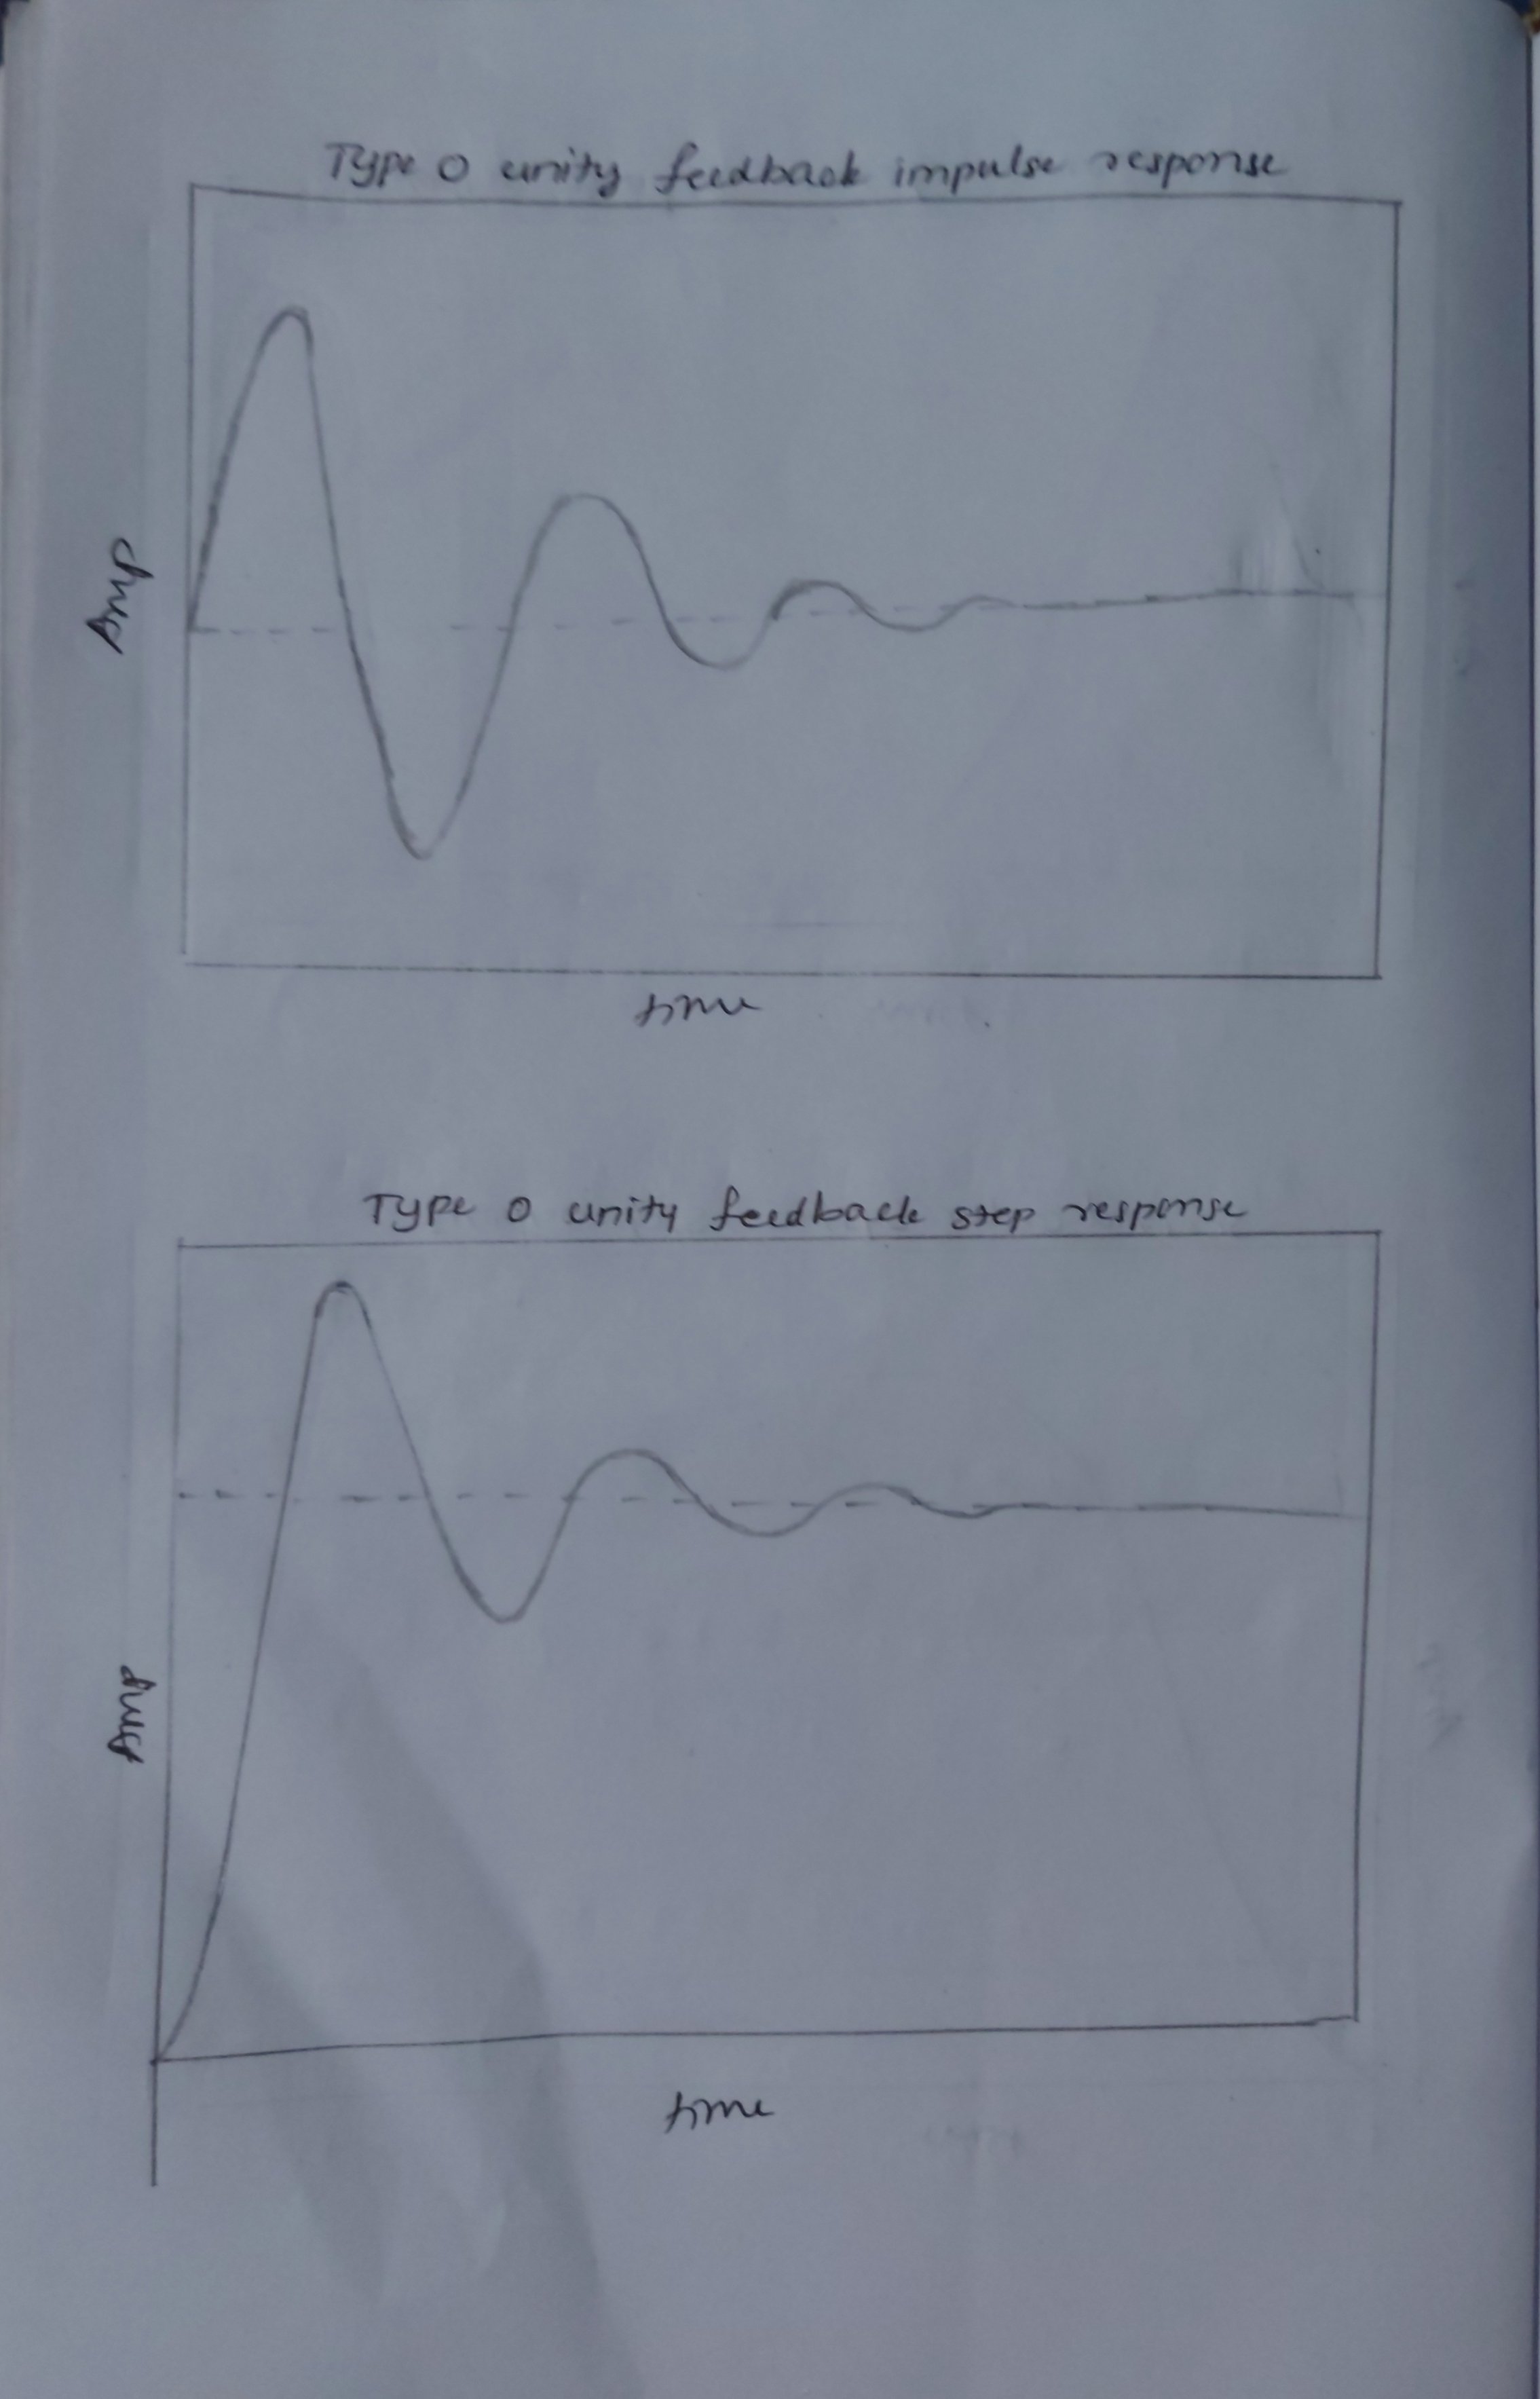 Type 0 unity feedback impulse response
Amp
time
Type 0 unity feedback step response
Amp
time